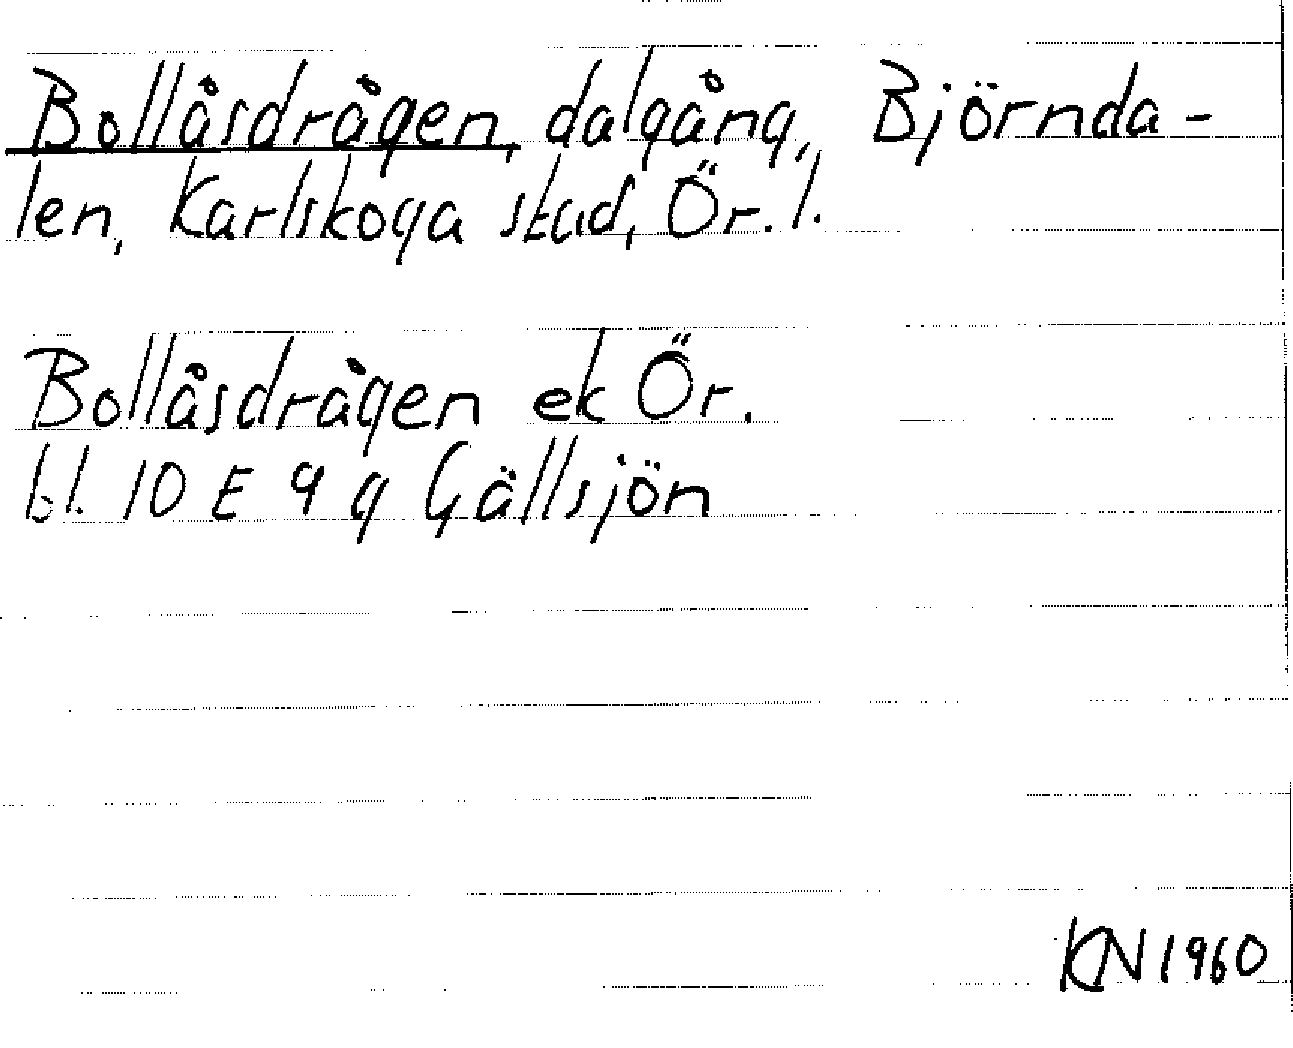 Bollåsdrågen, dalgång, Björnda-
len, Karlskoga stad, Ör. l.
Bollåsdrågen ek Ör.
bl. 10 E 9 g Gällsjön
KN 1960